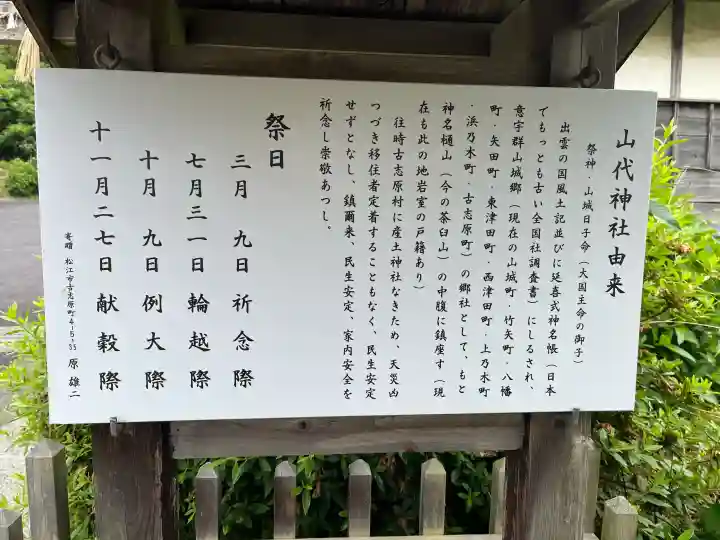 山代神社由来
祭神・山城日子命（大国主命の御子）
出雲の国風土記並びに延喜式神名帳（日本
でもっとも古い全国社調査書）にしるされ、
意宇群山城郷（現在の山城町・竹矢町・八幡
町・矢田町・東津田町・西津田町・上乃木町
・浜乃木町・古志原町）の郷社として、もと
神名樋山（今の茶臼山）の中腹に鎮座す（現
在も此の地岩室の戸籍あり）
往時古志原村に産土神社なきため、天災凶
つづき移住者定着することもなく、民生安定
せずとなし、鎮爾来、民生安定、家内安全を
祈念し崇敬あつし。
祭日
三月 九日祈念際
七月三一日輪越際
十月 九日例大際
十一月二七日献穀際
寄贈 松江市古志原町4-5-33 原 雄二